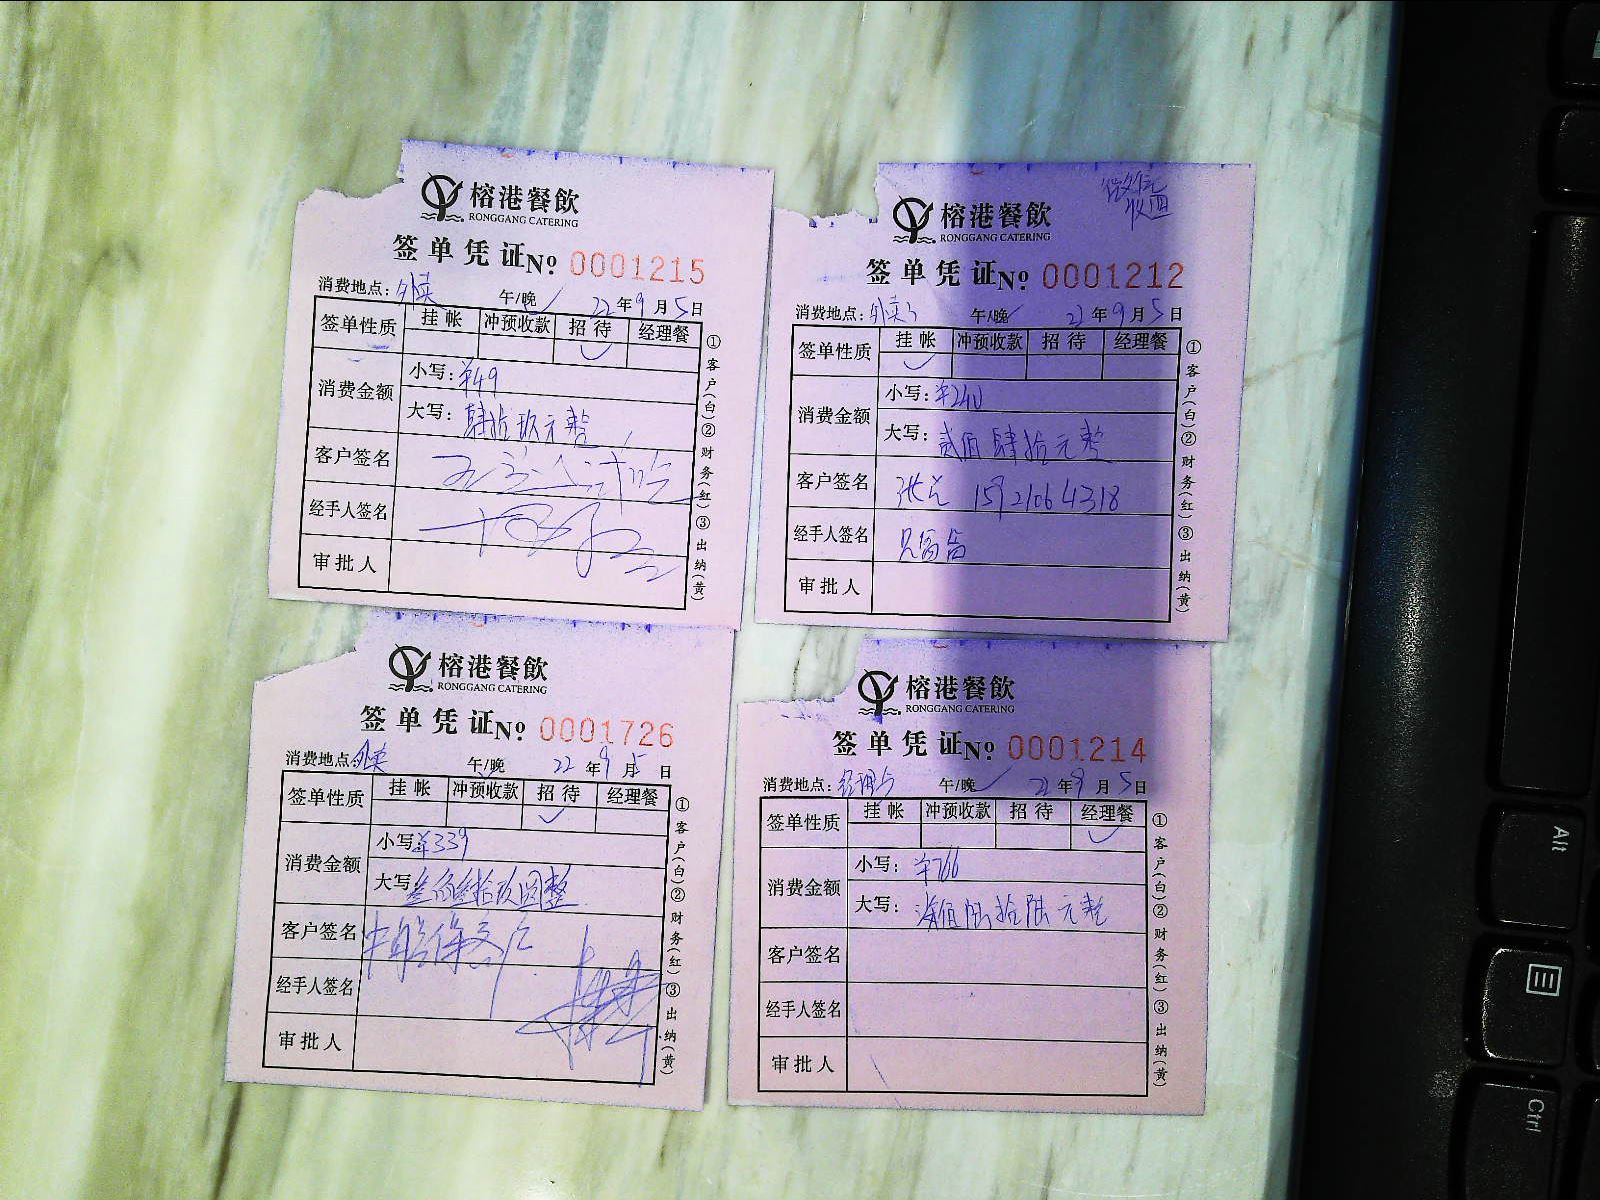 榕港餐飲
RONGGANG CATERING
签单凭证№ 0001215
消费地点: 外卖 午/晚 22年9月5日
签单性质 挂帐 冲预收款 招待 经理餐
消费金额 小写: ¥49
大写: 肆拾玖元整
客户签名
经手人签名
审批人
①客户(白)②财务(红)③出纳(黄)
微信
收回
榕港餐飲
RONGGANG CATERING
签单凭证№ 0001212
消费地点: 外卖 午/晚 22年9月5日
签单性质 挂帐 冲预收款 招待 经理餐
消费金额 小写: ¥240
大写: 贰佰肆拾元整
客户签名 15921064318
经手人签名
审批人
①客户(白)②财务(红)③出纳(黄)
榕港餐飲
RONGGANG CATERING
签单凭证№ 0001726
消费地点: 外卖 午/晚 22年9月5日
签单性质 挂帐 冲预收款 招待 经理餐
消费金额 小写: ¥339
大写: 叁佰叁拾玖圆整
客户签名
经手人签名
审批人
①客户(白)②财务(红)③出纳(黄)
榕港餐飲
RONGGANG CATERING
签单凭证№ 0001214
消费地点: 午/晚 22年9月5日
签单性质 挂帐 冲预收款 招待 经理餐
消费金额 小写: ¥766
大写: 柒佰陆拾陆元整
客户签名
经手人签名
审批人
①客户(白)②财务(红)③出纳(黄)
Alt
Ctrl